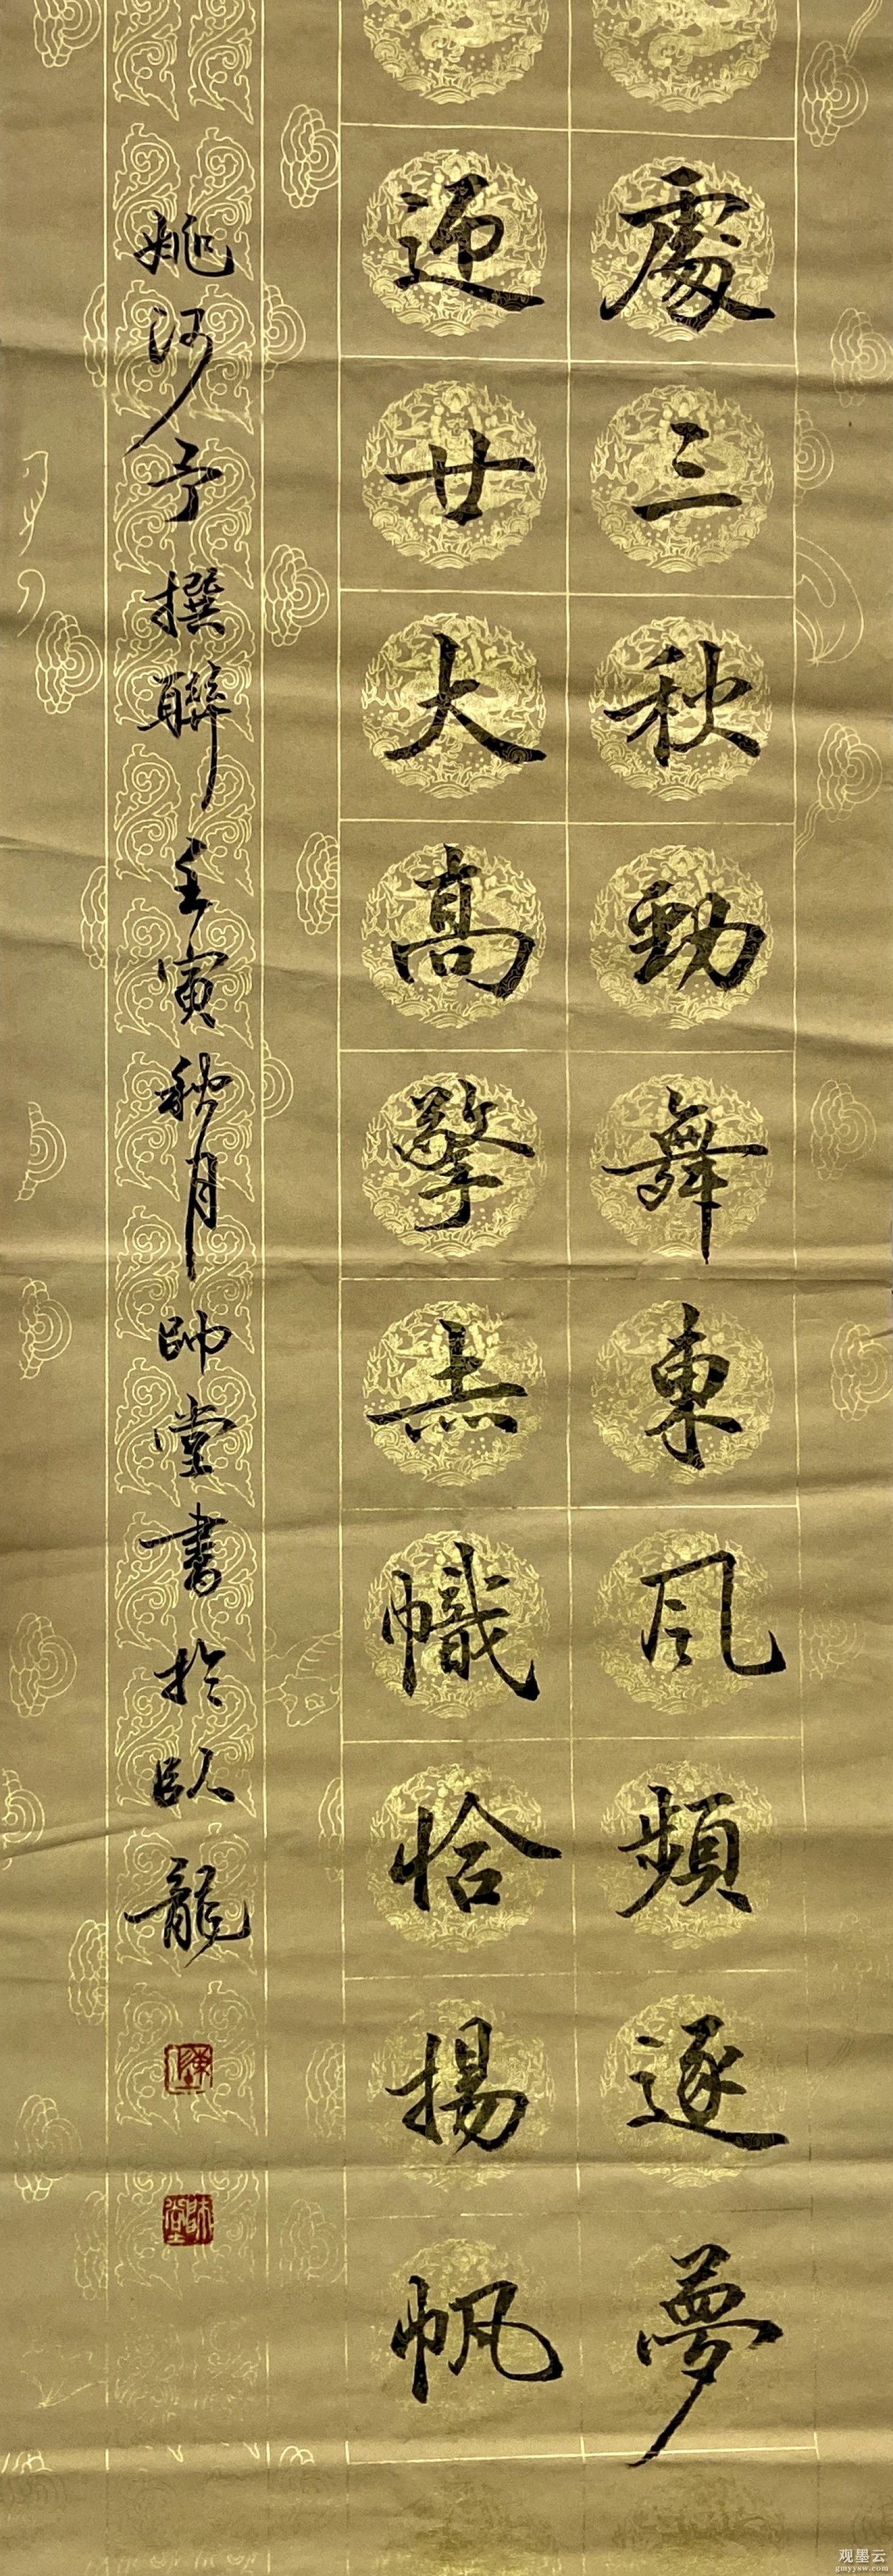 處三秋勁舞東風頻逐夢
迎廿大高擎赤幟恰揚帆
姚河予撰聯壬寅秋月帥堂書於臥龍
帥堂
观墨云
gmyysw.com